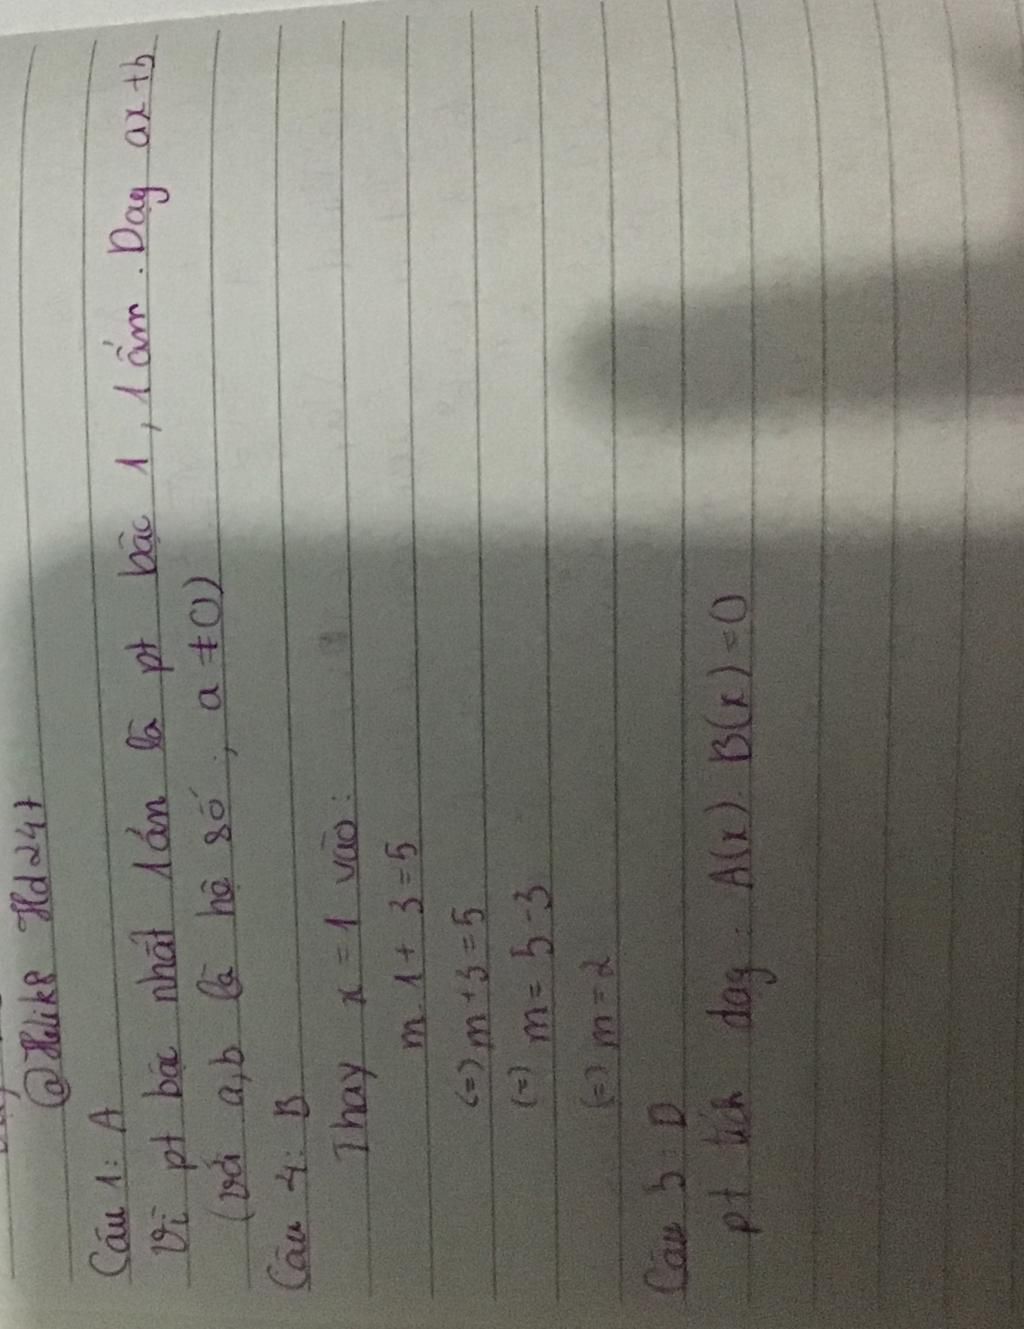 @Helik8 Hd24+
Câu 1: A
Vì pt bậc nhất 1 ẩn là pt bậc 1, 1 ẩm. Dạg ax+b
(với a,b là hệ số, a ≠ 0)
Câu 4: B
Thay x = 1 vào:
m.1 + 3 = 5
(=) m + 3 = 5
(=) m = 5 - 3
(=) m = 2
Câu 5: D
pt tích dạg: A(x).B(x) = 0